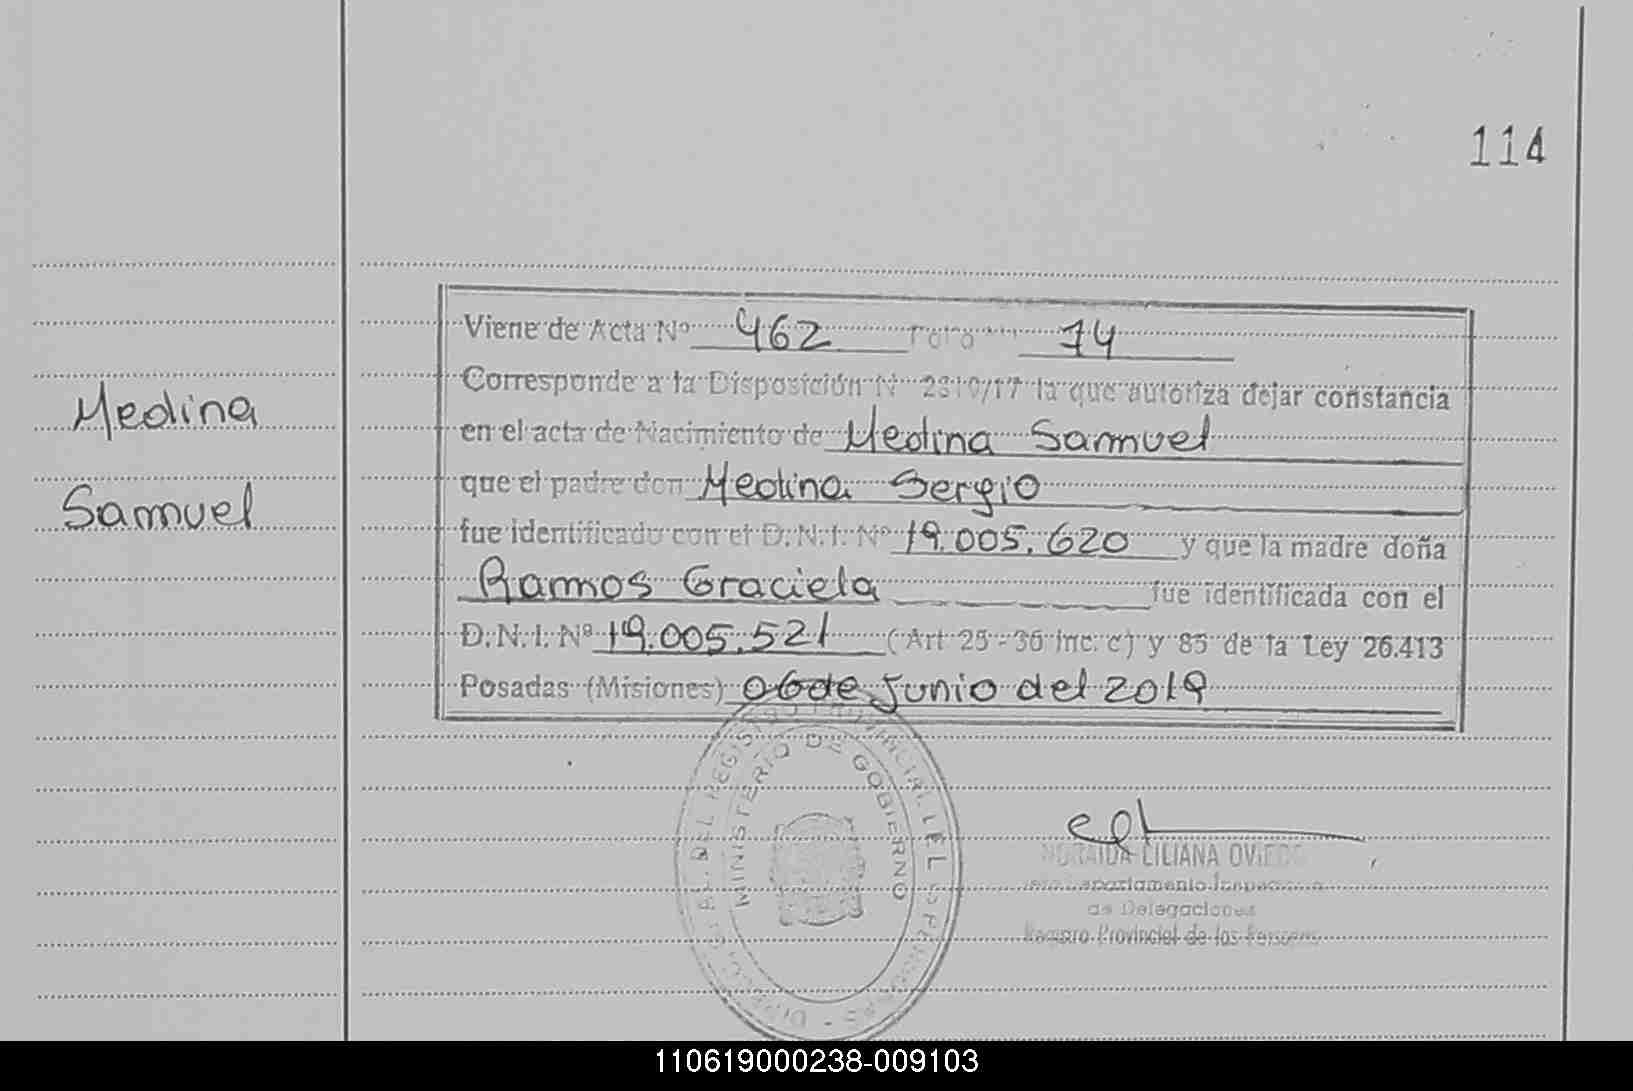 114
Medina
Samuel
Viene de Acta Nº 462 Folio 74
Corresponde a la Disposición Nº 2310/17 la que autoriza dejar constancia
en el acta de Nacimiento de Medina Samuel
que el padre don Medina Sergio
fue identificado con el D.N.I. Nº 19.005.620 y que la madre doña
Ramos Graciela fue identificada con el
D.N.I. Nº 19.005.521 (Art 25-36 inc. c) y 85 de la Ley 26.413
Posadas (Misiones) 06 de Junio del 2019
MINISTERIO DE GOBIERNO
NORAIDA LILIANA OVIEDO
Departamento Inspección
de Delegaciones
Registro Provincial de las Personas
110619000238-009103